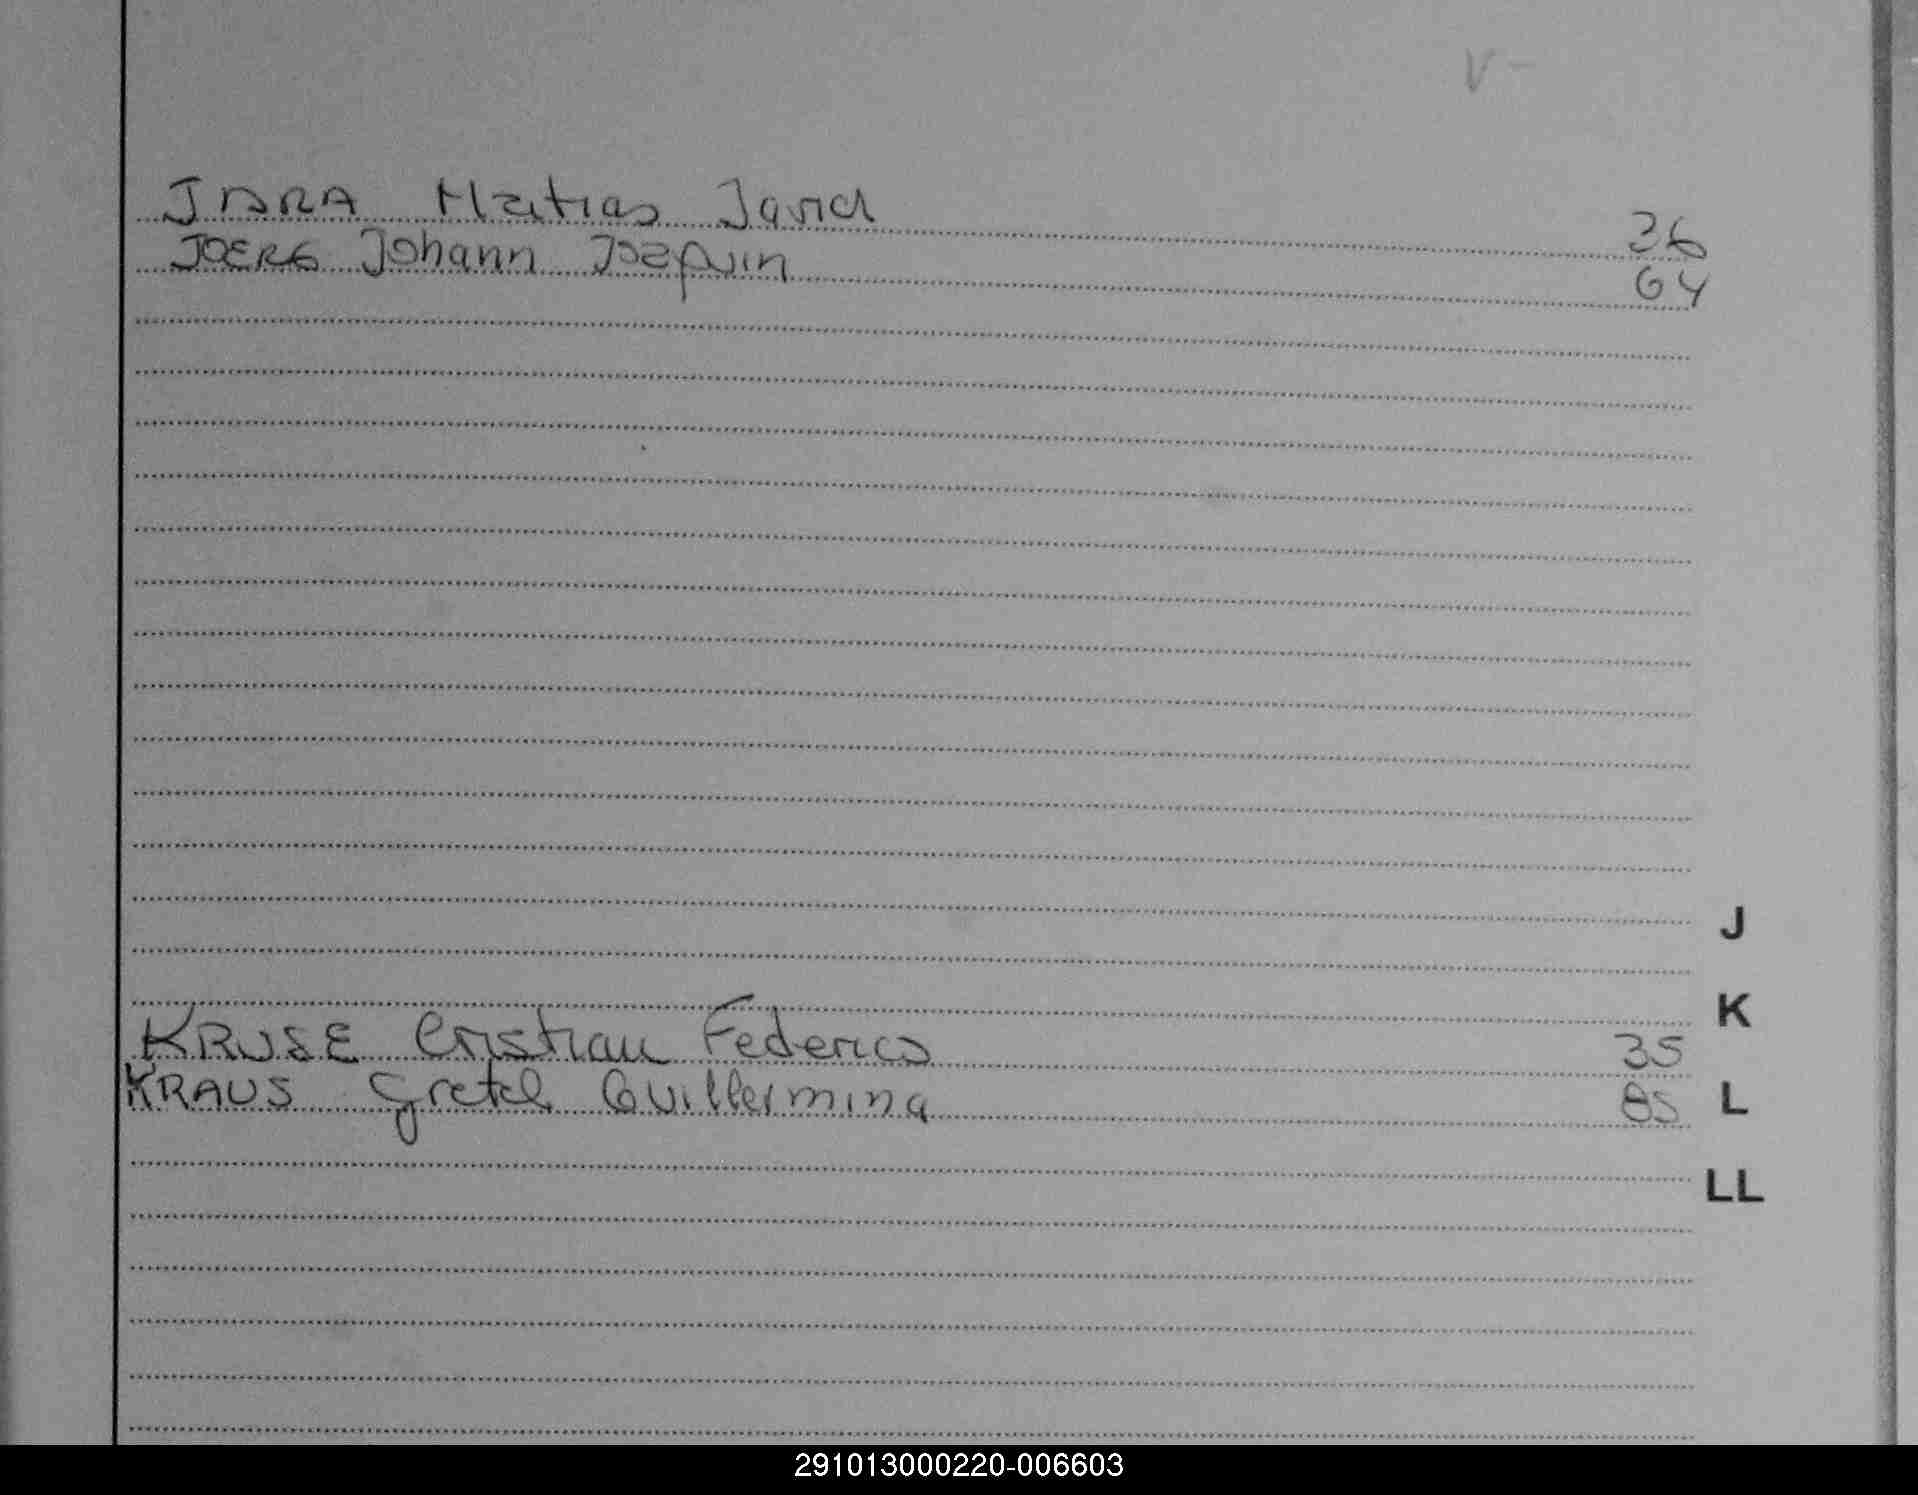 V -
JARA Matias Javier 36
JOERG Johann Joaquin 64
J
K
KRUSE Cristian Federico 35
KRAUS Gretel Guillermina 85
L
LL
291013000220-006603